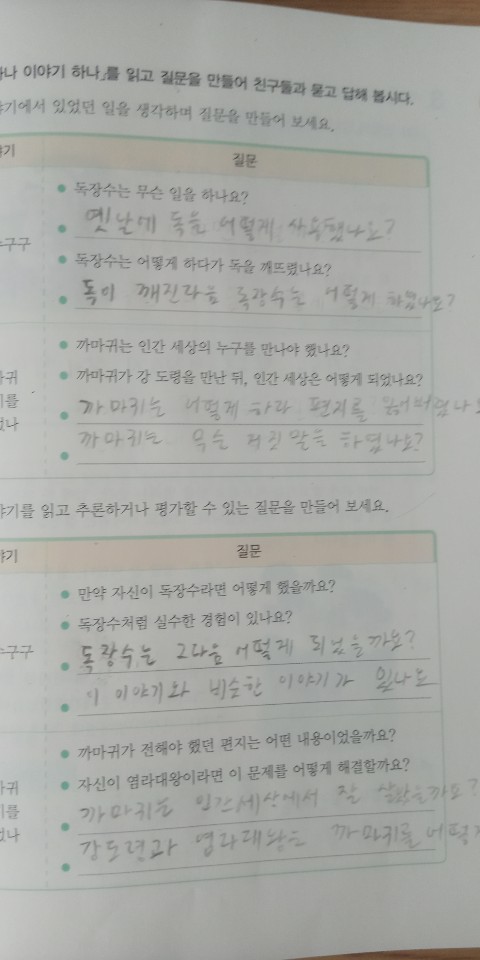 나 이야기 하나」를 읽고 질문을 만들어 친구들과 묻고 답해 봅시다.
기에서 있었던 일을 생각하며 질문을 만들어 보세요.
질문
독장수는 무슨 일을 하나요?
옛날에 독을 어떻게 사용했나요?
독장수는 어떻게 하다가 독을 깨뜨렸나요?
구구
독이 깨진다음 독장수는 어떻게 하였나요?
까마귀는 인간 세상의 누구를 만나야 했나요?
까마귀가 강 도령을 만난 뒤, 인간 세상은 어떻게 되었나요?
귀
를
까마귀는 어떻게 하다 편지를
났나
까마귀는 무슨 거짓말을 하였나요?
야기를 읽고 추론하거나 평가할 수 있는 질문을 만들어 보세요.
기
질문
만약 자신이 독장수라면 어떻게 했을까요?
독장수처럼 실수한 경험이 있나요?
구구
독장수는 그다음 어떻게 되었을까요?
이 이야기와 비슷한 이야기가 있나요
까마귀가 전해야 했던 편지는 어떤 내용이었을까요?
귀
자신이 염라대왕이라면 이 문제를 어떻게 해결할까요?
를
까마귀는 인간세상에서 잘 살았을까요?
났나
강도령과 염라대왕은 까마귀를 어떻게